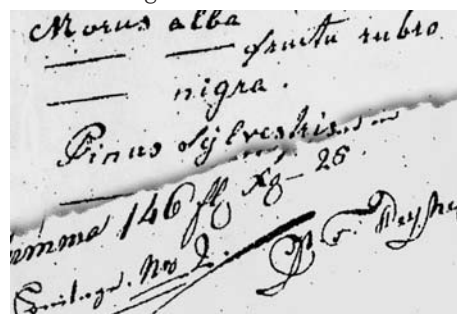 Morus alba
— — fructu rubro
— nigra.
Pinus Sylvestris
Summa 146 fl Xg - 26.
No 2.